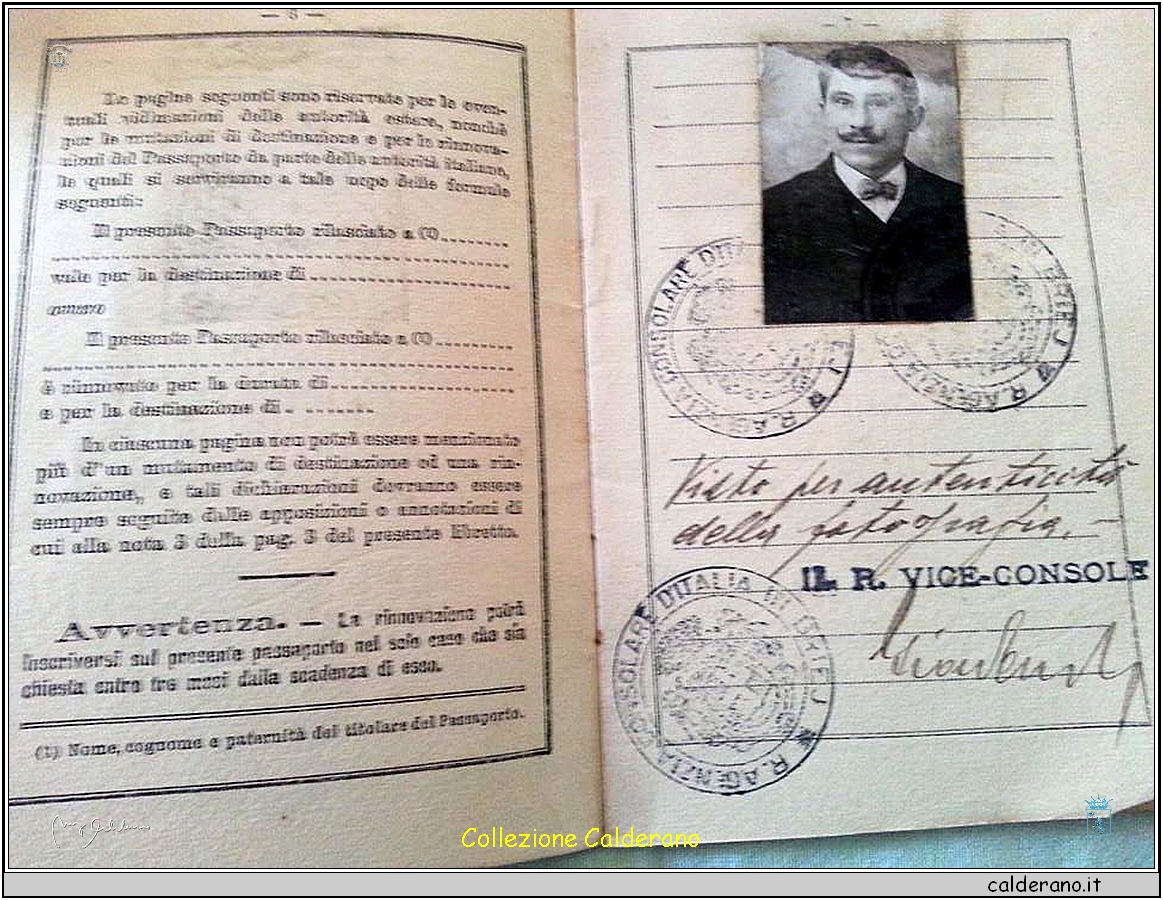 — 6 —
Le pagine seguenti sono riservate per le even-
tuali vidimazioni delle autorità estere, nonchè
per le mutazioni di destinazione e per le rinnova-
zioni del Passaporto da parte delle autorità italiane,
le quali si serviranno a tale uopo delle formule
seguenti:
Il presente Passaporto rilasciato a (1)
vale per la destinazione di
ovvero
Il presente Passaporto rilasciato a (1)
è rinnovato per la durata di
e per la destinazione di
In ciascuna pagina non potrà essere menzionato
più d'un mutamento di destinazione ed una rin-
novazione, e tali dichiarazioni dovranno essere
sempre seguite dalle apposizioni o annotazioni di
cui alla nota 3 della pag. 3 del presente libretto.
Avvertenza. — La rinnovazione potrà
inscriversi sul presente passaporto nel solo caso che sia
chiesta entro tre mesi dalla scadenza di esso.
(1) Nome, cognome e paternità del titolare del Passaporto.
R. AGENZIA CONSOLARE D'ITALIA
R. AGENZIA BRIEJ
Visto per autenticità
della fotografia. —
IL R. VICE-CONSOLE
R. AGENZIA CONSOLARE D'ITALIA DI BRIEJ
Collezione Calderano
calderano.it